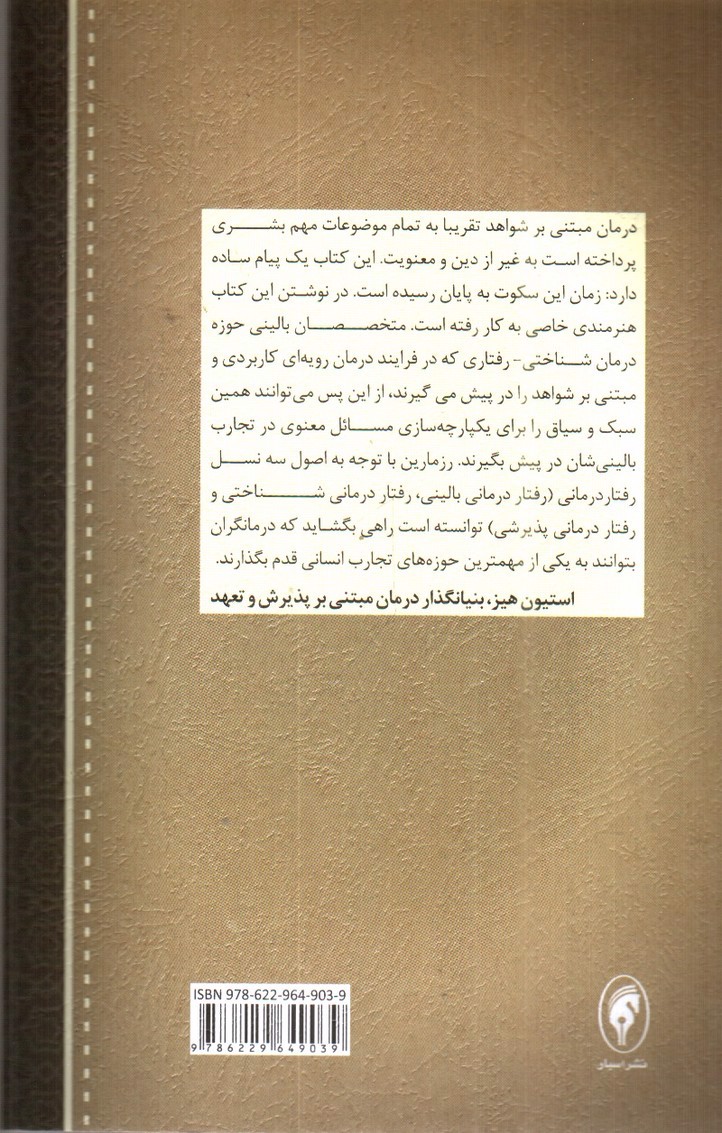 درمان مبتنی بر شواهد تقریبا به تمام موضوعات مهم بشری
پرداخته است به غیر از دین و معنویت. این کتاب یک پیام ساده
دارد: زمان این سکوت به پایان رسیده است. در نوشتن این کتاب
هنرمندی خاصی به کار رفته است. متخصصان بالینی حوزه
درمان شناختی- رفتاری که در فرایند درمان رویه‌ای کاربردی و
مبتنی بر شواهد را در پیش می گیرند، از این پس می‌توانند همین
سبک و سیاق را برای یکپارچه‌سازی مسائل معنوی در تجارب
بالینی‌شان در پیش بگیرند. رزمارین با توجه به اصول سه نسل
رفتاردرمانی (رفتار درمانی بالینی، رفتار درمانی شناختی و
رفتار درمانی پذیرشی) توانسته است راهی بگشاید که درمانگران
بتوانند به یکی از مهمترین حوزه‌های تجارب انسانی قدم بگذارند.
استیون هیز، بنیانگذار درمان مبتنی بر پذیرش و تعهد
ISBN 978-622-964-903-9
9 786229 649039
نشر اسبار